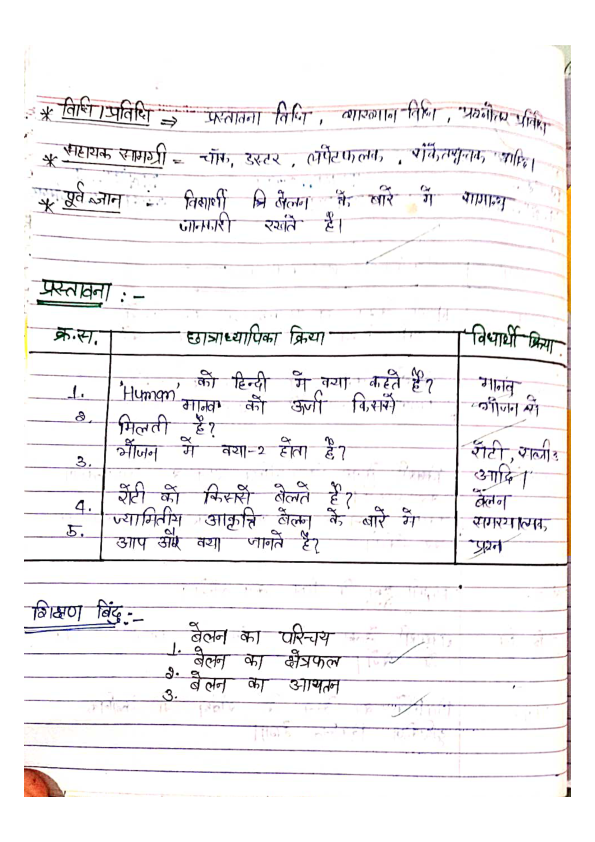 * विधि/प्रविधि ⇒ प्रस्तावना विधि, व्याख्यान-विधि, प्रश्नोत्तर प्रविधि
* सहायक सामग्री = चॉक, डस्टर, लपेटफलक, संकेतसूचक आदि।
* पूर्व ज्ञान :- विद्यार्थी बेलन के बारे में सामान्य
जानकारी रखते है।
प्रस्तावना :-
क्र.स. छात्राध्यापिका क्रिया विधार्थी क्रिया
1. 'Human' को हिन्दी में क्या कहते है? मानव
2. मानव को ऊर्जा किससे भोजन से
मिलती है?
3. भोजन में क्या-2 होता है? रोटी, सब्जी
आदि।
4. रोटी को किससे बेलते है? बेलन
5. ज्यामितीय आकृति बेलन के बारे में समस्यात्मक
आप और क्या जानते है? प्रश्न
शिक्षण बिंदु :-
1. बेलन का परिचय
2. बेलन का क्षेत्रफल
3. बेलन का आयतन